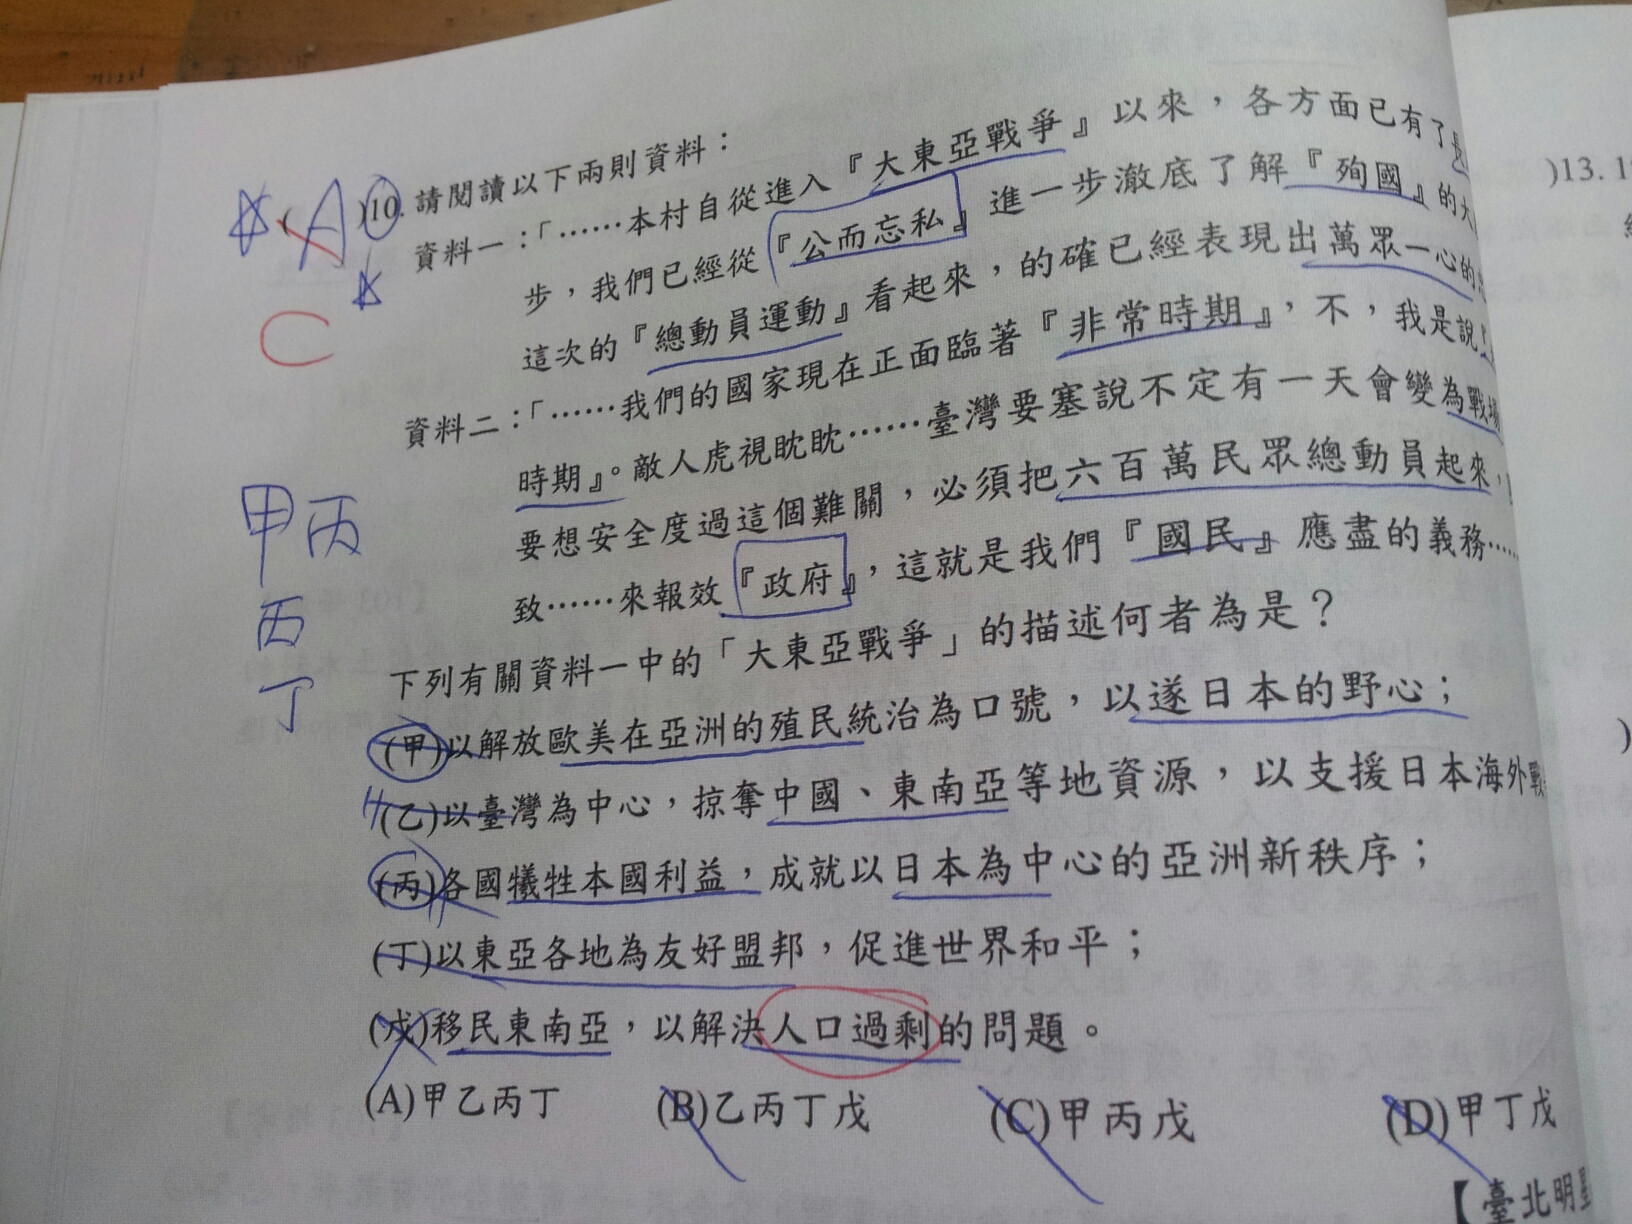 (A)10.請閱讀以下兩則資料：
資料一：「……本村自從進入『大東亞戰爭』以來，各方面已有了長
步，我們已經從『公而忘私』進一步澈底了解『殉國』的大
這次的『總動員運動』看起來，的確已經表現出萬眾一心的
資料二：「……我們的國家現在正面臨著『非常時期』，不，我是說『
時期』。敵人虎視眈眈……臺灣要塞說不定有一天會變為戰場
要想安全度過這個難關，必須把六百萬民眾總動員起來，
致……來報效『政府』，這就是我們『國民』應盡的義務……
下列有關資料一中的「大東亞戰爭」的描述何者為是？
(甲)以解放歐美在亞洲的殖民統治為口號，以遂日本的野心；
(乙)以臺灣為中心，掠奪中國、東南亞等地資源，以支援日本海外戰
(丙)各國犧牲本國利益，成就以日本為中心的亞洲新秩序；
(丁)以東亞各地為友好盟邦，促進世界和平；
(戊)移民東南亞，以解決人口過剩的問題。
(A)甲乙丙丁 (B)乙丙丁戊 (C)甲丙戊 (D)甲丁戊
【臺北明星
C
甲丙
丙
丁
)13. 1
)